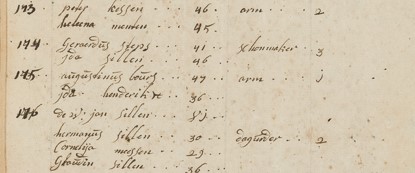 173 peter kossen .. 46 .. arm .. 2
helena menten .. 45.
174 Gerardus steps .. 41 .. schonmaker . 3
jda sillen .. 46
175 augustinus bours .. 47 .. arm .. 1
jda henderikx .. 36 ..
176 de w: jan sillen .. 51 ..
hermanus sillen .. 30 .. dagurder .. 2
Cornelija meossen .. 29 ..
sillen .. 36 ..